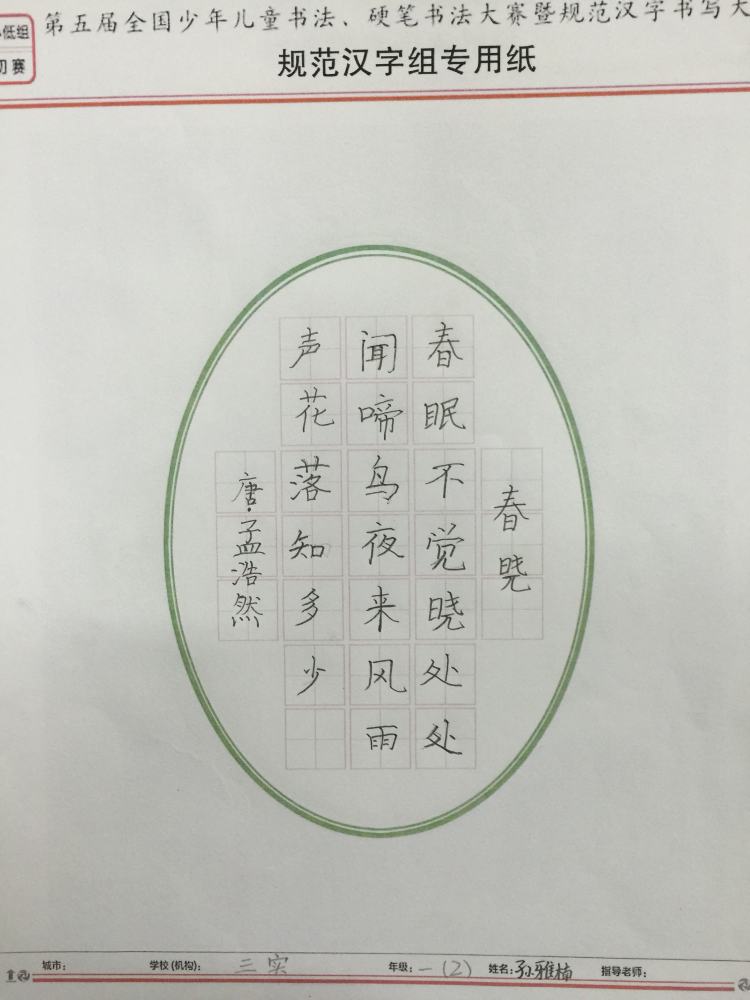 第五届全国少年儿童书法、硬笔书法大赛暨规范汉字书写大
低组
初赛
规范汉字组专用纸
春晓
春眠不觉晓处处
闻啼鸟夜来风雨
声花落知多少
唐·孟浩然
城市：
学校(机构)：三实
年级：一(2)
姓名：孙雅楠
指导老师：